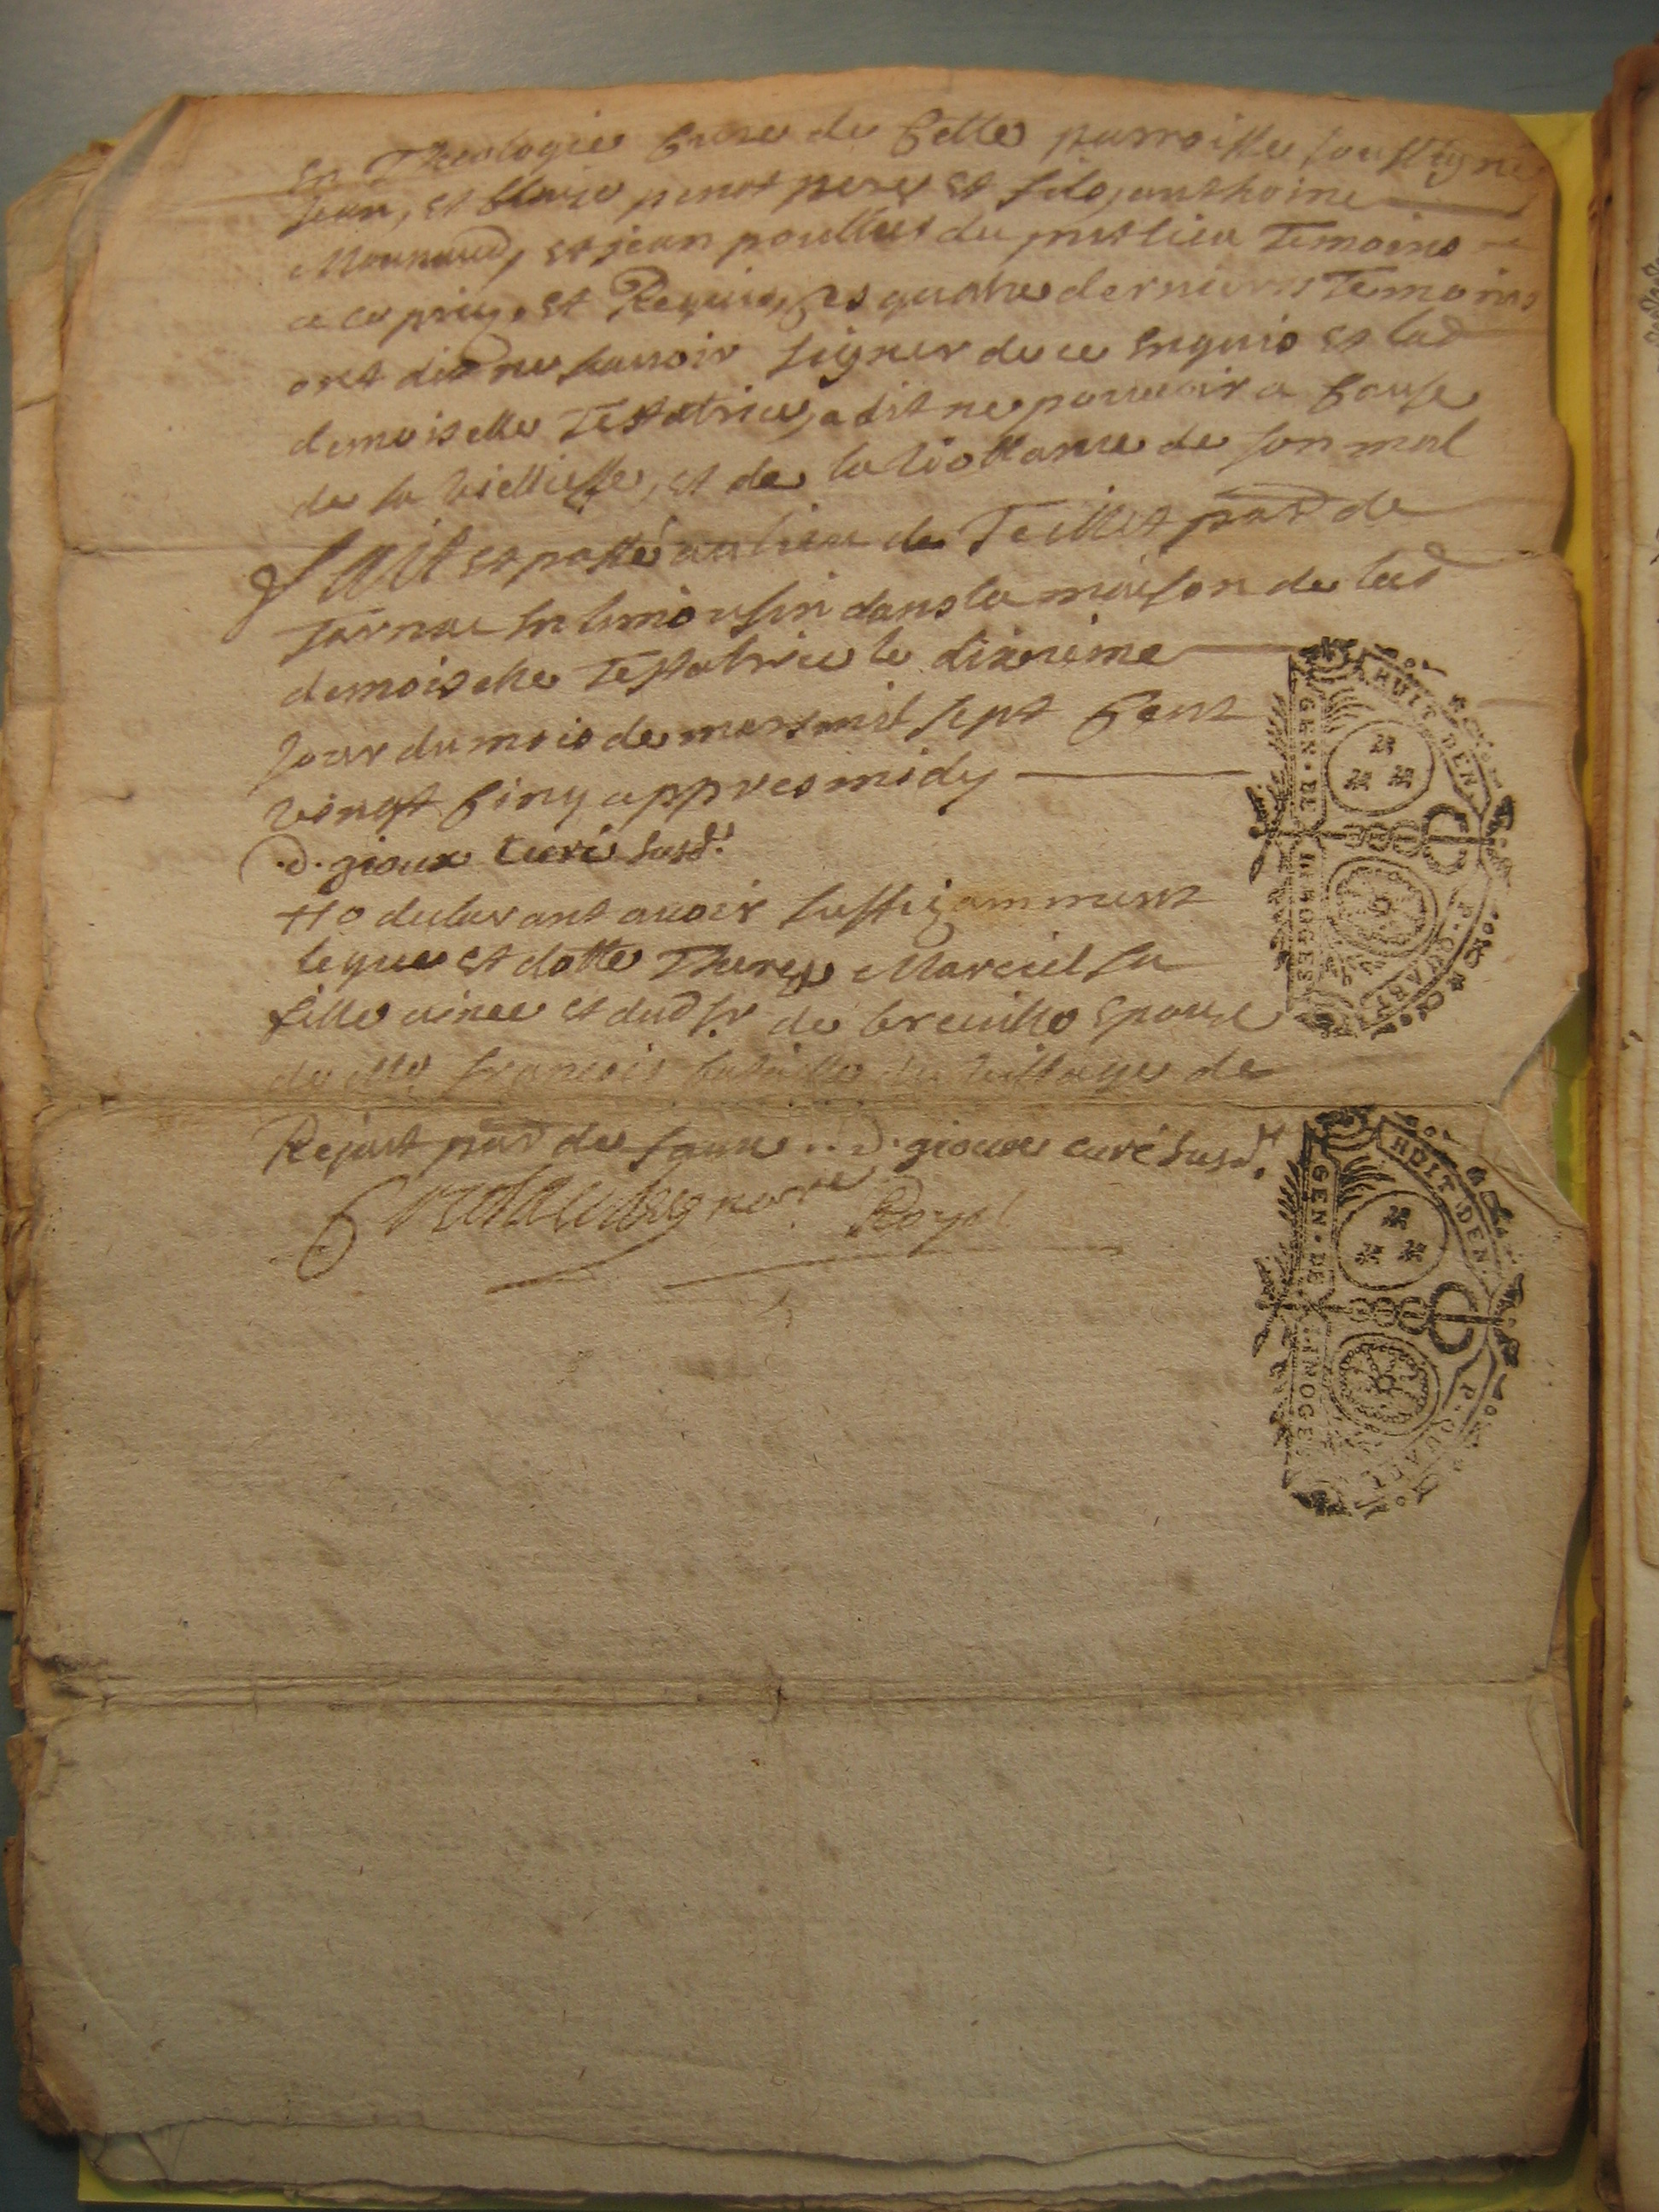 en Theologie Cure de Cette parroisse soussigné
Jean, et Blaize penot pere et fils, anthoine
Mounaud, et jean pouthet du pnt lieu Temoins
a ce priés, et Requis, les quatre derniers Temoins
ont dit ne scauoir signer de ce enquis et lad
demoiselle Testatrice, a dit ne pouuoir a Cause
de sa vielliesse, et de la viollance de son mal
Fait et passé au lieu de Teillet par de
Tarnac en limousin dans la maison de lad
demoiselle Testatrice le dixieme
Jour du mois de mars mil sept Cent
vingt Cinq appres midy
D. gioux Curé susd.
declarant auoir suffizamment
legué et dotté Mareiel sa
fille ainee et dud sr de breuilho epouse
de Me francois du village de
Rejat par de D. gioux curé susd.
Royal
HUIT DEN
GEN · DE LIMOGES
P. QUART
HUIT DEN
GEN · DE LIMOGES
P. QUART